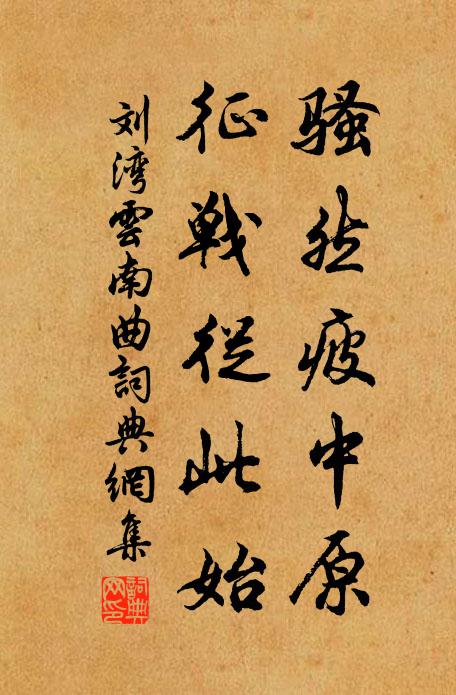 骚然疲中原
征戰從此始
刘湾雲南曲詞典網集
詞典
网印